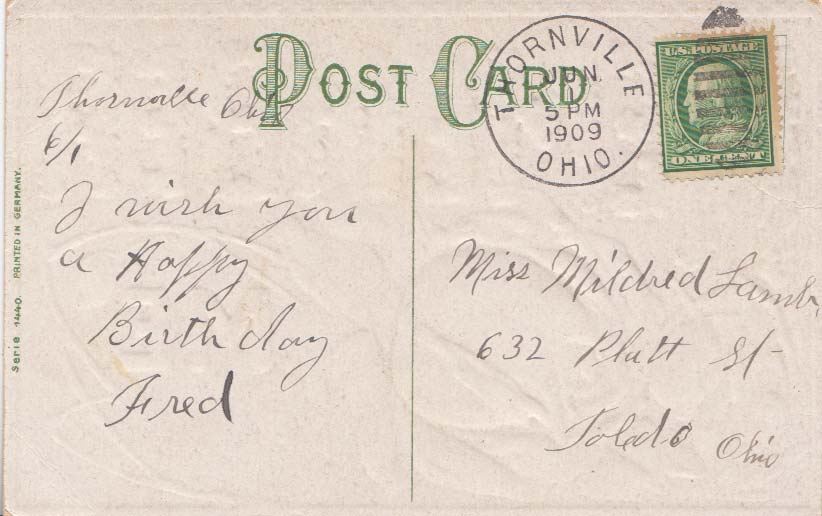 POST CARD
THORNVILLE
JUN.
1
5 PM
1909
OHIO.
U.S. POSTAGE
ONE CENT
Thornville Ohio
6/1
I wish you
a Happy
Birth day
Fred
Miss Mildred Lamb,
632 Platt St-
Toledo Ohio
Serie 1440. PRINTED IN GERMANY.